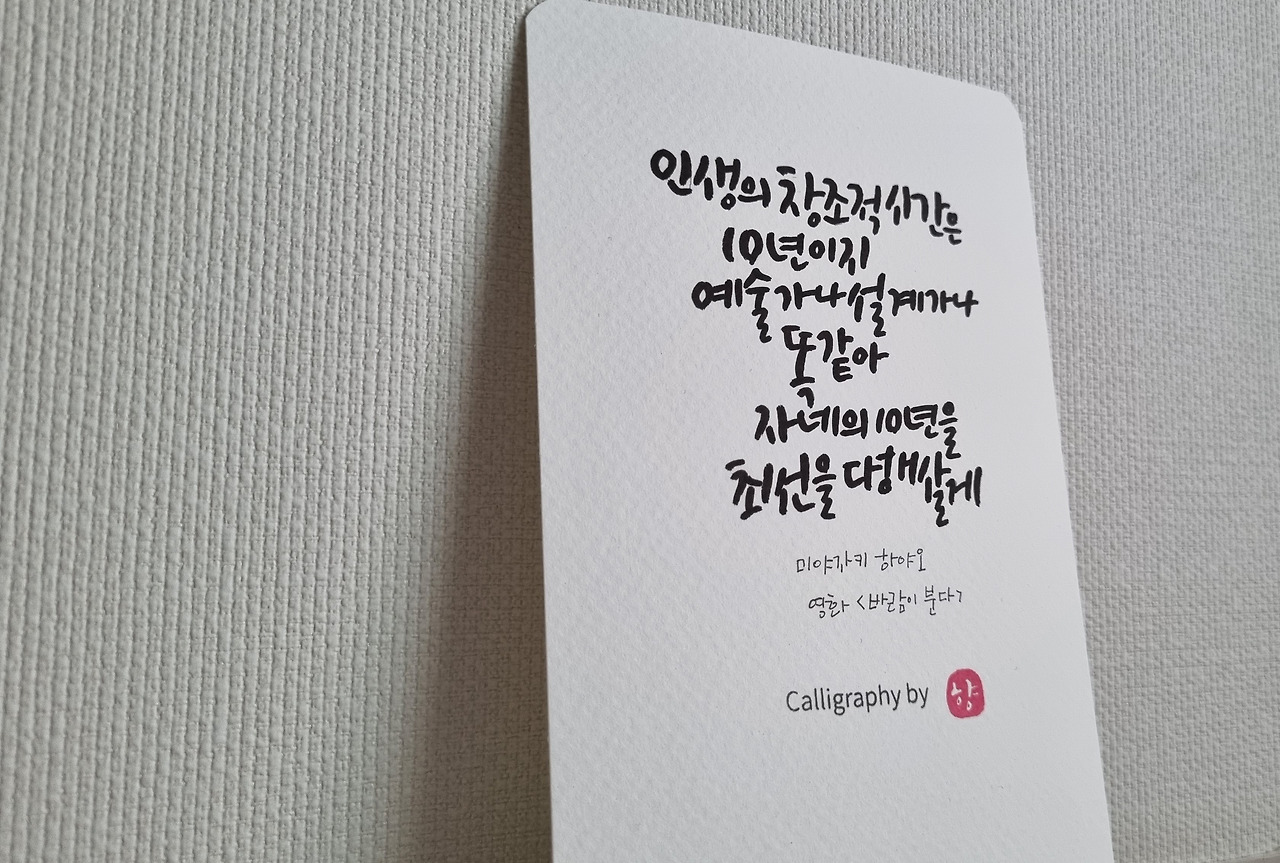 인생의 창조적 시간은
10년이지
예술가나 설계가나
똑같아
자네의 10년을
최선을 다해 살게
미야자키 하야오
영화 <바람이 분다>
Calligraphy by 향